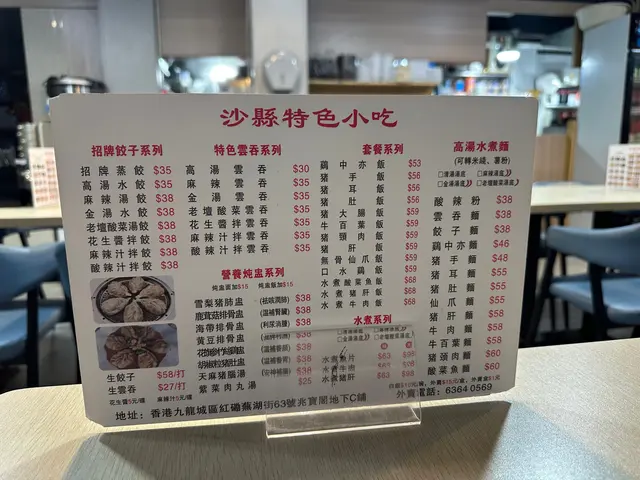 沙縣特色小吃
招牌餃子系列
招牌蒸餃 $35
高湯水餃 $35
麻辣湯餃 $38
金湯水餃 $38
老壇酸菜湯餃 $38
花生醬拌餃 $38
麻辣汁拌餃 $38
酸辣汁拌餃 $38
生餃子 $58/打
生雲吞 $27/打
花生醬5元/樽 麻辣汁5元/樽
特色雲吞系列
高湯雲吞 $30
麻辣雲吞 $35
金湯雲吞 $35
老壇酸菜雲吞 $35
花生醬拌雲吞 $35
麻辣汁拌雲吞 $35
酸辣汁拌雲吞 $35
營養炖盅系列
炖盅面加$15 炖盅飯加$15
雪梨豬肺盅 $38
鹿茸菇排骨盅 (溫補腎臟) $38
海帶排骨盅 (利尿消腫) $38
黃豆排骨盅 $38
$38
胡椒豬肚盅 $38
天麻豬腦湯 $38
紫菜肉丸湯 $25
套餐系列
鷄中亦飯 $53
豬手飯 $56
豬耳飯 $56
豬肚飯 $56
豬大腸飯 $59
牛百葉飯 $59
豬頸肉飯 $59
豬肝飯 $59
無骨仙爪飯 $59
口水鷄飯 $59
水煮酸菜魚飯 $68
水煮豬肝飯 $68
水煮牛肉飯 $68
水煮系列
水煮魚片 $63
水煮牛肉
水煮豬肝 $63 $98
高湯水煮麵
(可轉米綫、薯粉)
□清湯湯底 □麻辣湯底
□金湯湯底 □老壇酸菜湯底
酸辣粉 $38
雲吞麵 $38
餃子麵 $38
鷄中亦麵 $46
豬手麵 $48
豬耳麵 $55
豬肚麵 $55
仙爪麵 $55
豬肝麵 $58
牛肉麵 $58
牛百葉麵 $58
豬頸肉麵 $60
酸菜魚麵 $60
外賣電話：6364 0569
地址：香港九龍城區紅磡蕪湖街63號兆寶閣地下C舖